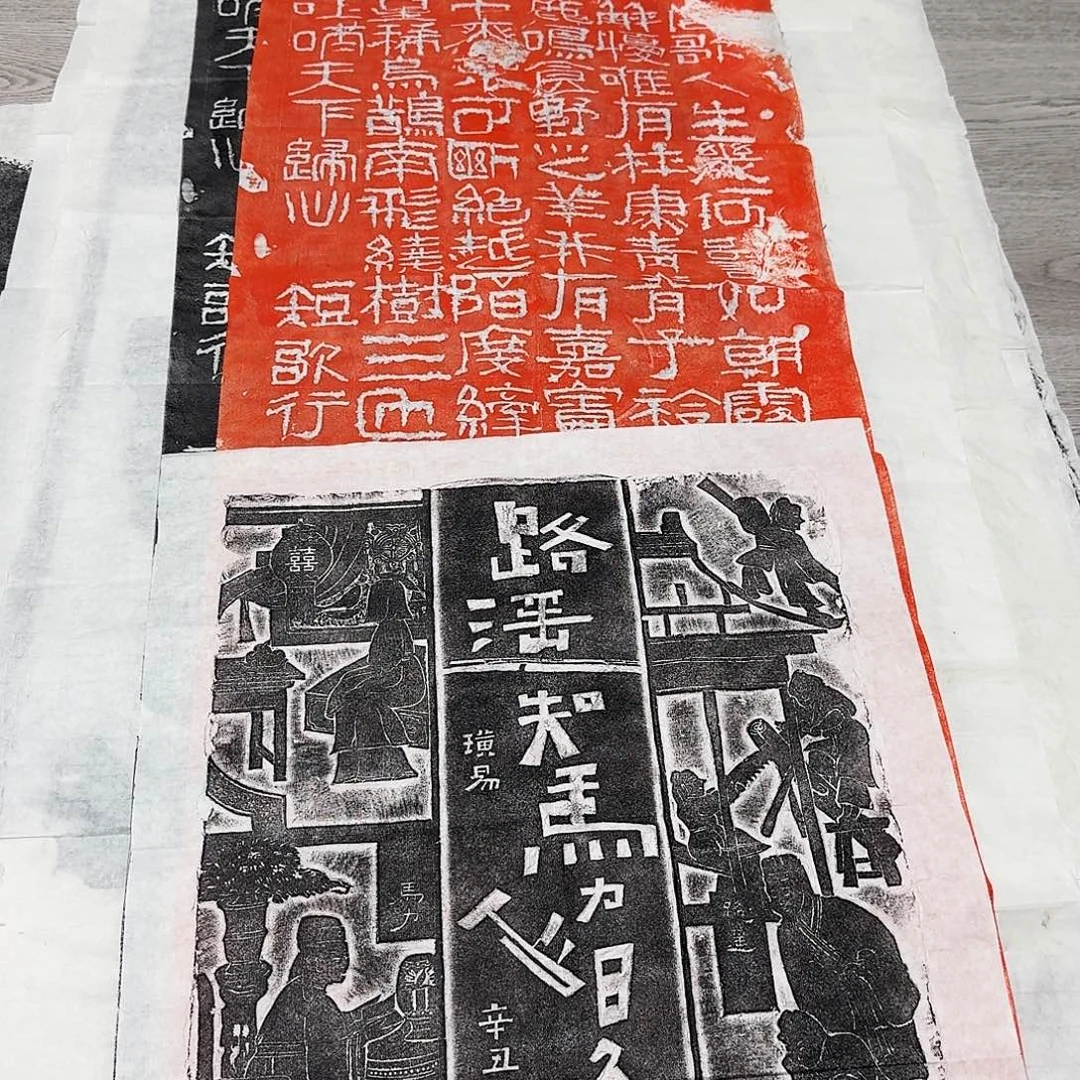 歌人生幾何譬如朝露
解憂唯有杜康青青子衿
鹿鳴食野之苹我有嘉賓
來不可斷絕越陌度
星稀烏鵲南飛繞樹三匝
吐哺天下歸心 短歌行
哺天下歸心 短歌行
路遥知馬力日久
人心
璜易
辛丑
囍
馬力
路遥